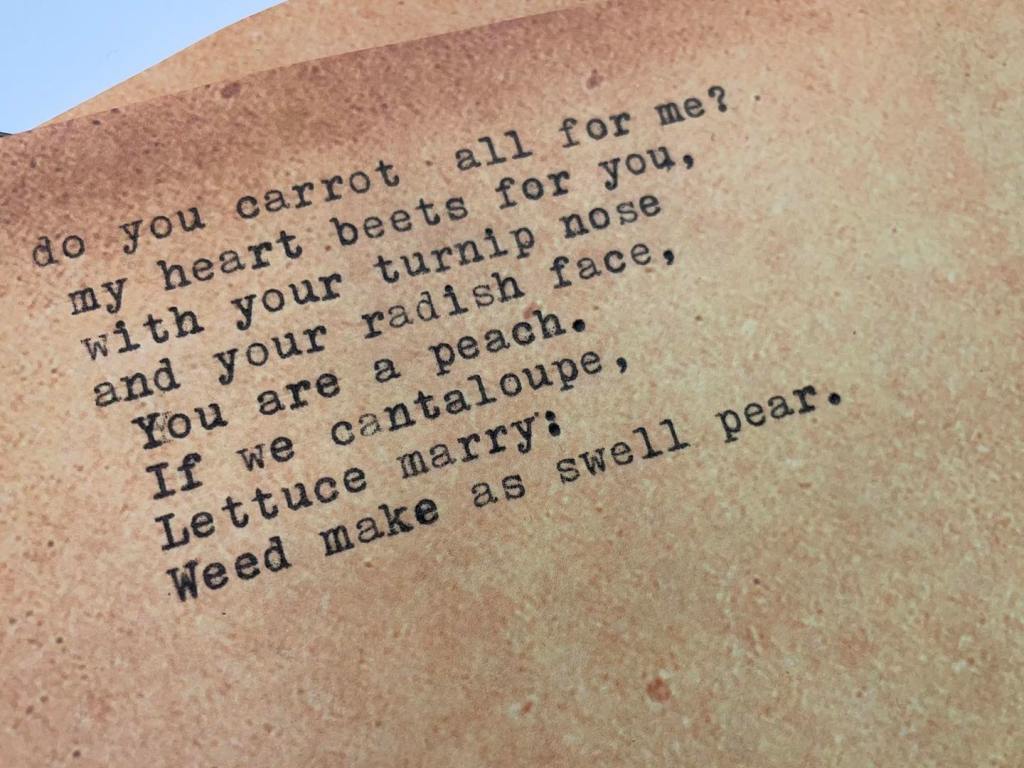 do you carrot all for me?
my heart beets for you,
with your turnip nose
and your radish face,
You are a peach.
If we cantaloupe,
Lettuce marry:
Weed make as swell pear.